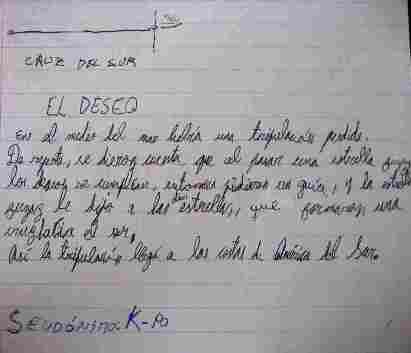 CRUZ DEL SUR
EL DESEO
En el medio del mar había una tripulación perdida.
De repente, se dieron cuenta que al pasar una estrella fugaz
los deseos se cumplían, entonces pidieron un guía, y la estrella
fugaz le dijo a las estrellas, que formaron una
al sur,
Así la tripulación llegó a las costas de América del Sur.
SEUDÓNIMO: K-PO